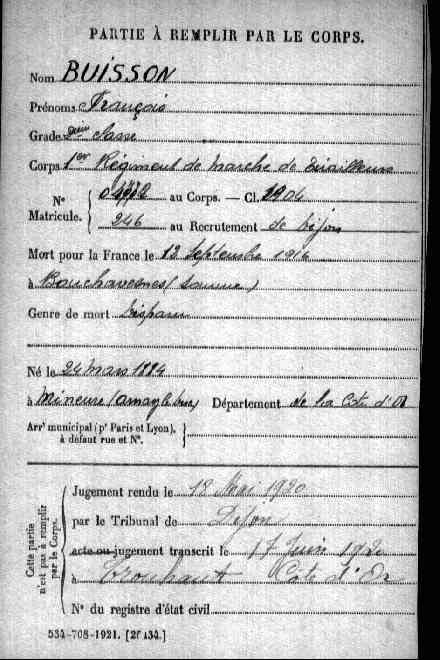 PARTIE À REMPLIR PAR LE CORPS.
Nom BUISSON
Prénoms François
Grade 2ème Classe
Corps 1er Régiment de Marche de Tirailleurs
N° Matricule. { au Corps. — Cl. 1904
246 au Recrutement de Dijon
Mort pour la France le 12 Septembre 1916
à Bouchavesnes (Somme)
Genre de mort Disparu
Né le 24 Mars 1884
à Mineure (Amay le Duc) Département de la Côte d'Or
Arrt municipal (pr Paris et Lyon), à défaut rue et N°.
Cette partie n'est pas à remplir par le Corps.
Jugement rendu le 18 Mai 1920
par le Tribunal de Dijon
acte ou jugement transcrit le 17 Juin 1920
à Trouhaut Côte d'Or
N° du registre d'état civil
534-708-1921. [26434.]